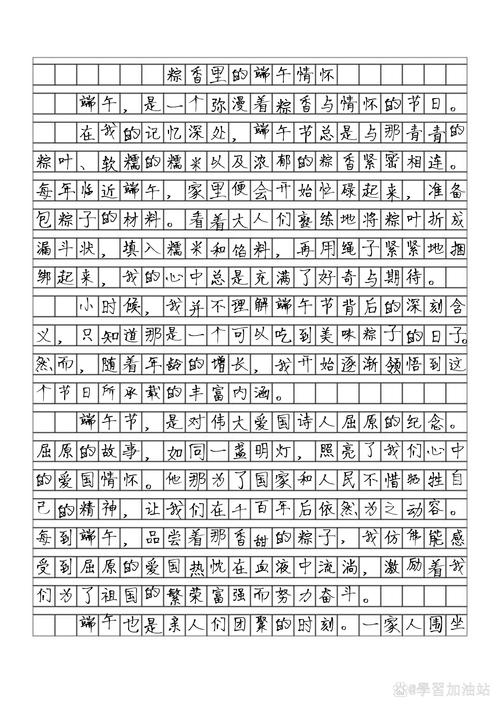 粽香里的端午情怀
端午，是一个弥漫着粽香与情怀的节日。
在我的记忆深处，端午节总是与那青青的
粽叶、软糯的糯米以及浓郁的粽香紧密相连。
每年临近端午，家里便会开始忙碌起来，准备
包粽子的材料。看着大人们熟练地将粽叶折成
漏斗状，填入糯米和馅料，再用绳子紧紧地捆
绑起来，我的心中总是充满了好奇与期待。
小时候，我并不理解端午节背后的深刻含
义，只知道那是一个可以吃到美味粽子的日子。
然而，随着年龄的增长，我开始逐渐领悟到这
个节日所承载的丰富内涵。
端午节，是对伟大爱国诗人屈原的纪念。
屈原的故事，如同一盏明灯，照亮了我们心中
的爱国情怀。他那为了国家和人民不惜牺牲自
己的精神，让我们在千百年后依然为之动容。
每到端午，品尝着那香甜的粽子，我仿佛能感
受到屈原的爱国热忱在血液中流淌，激励着我
们为了祖国的繁荣富强而努力奋斗。
端午也是亲人们团聚的时刻。一家人围坐
@學習加油站